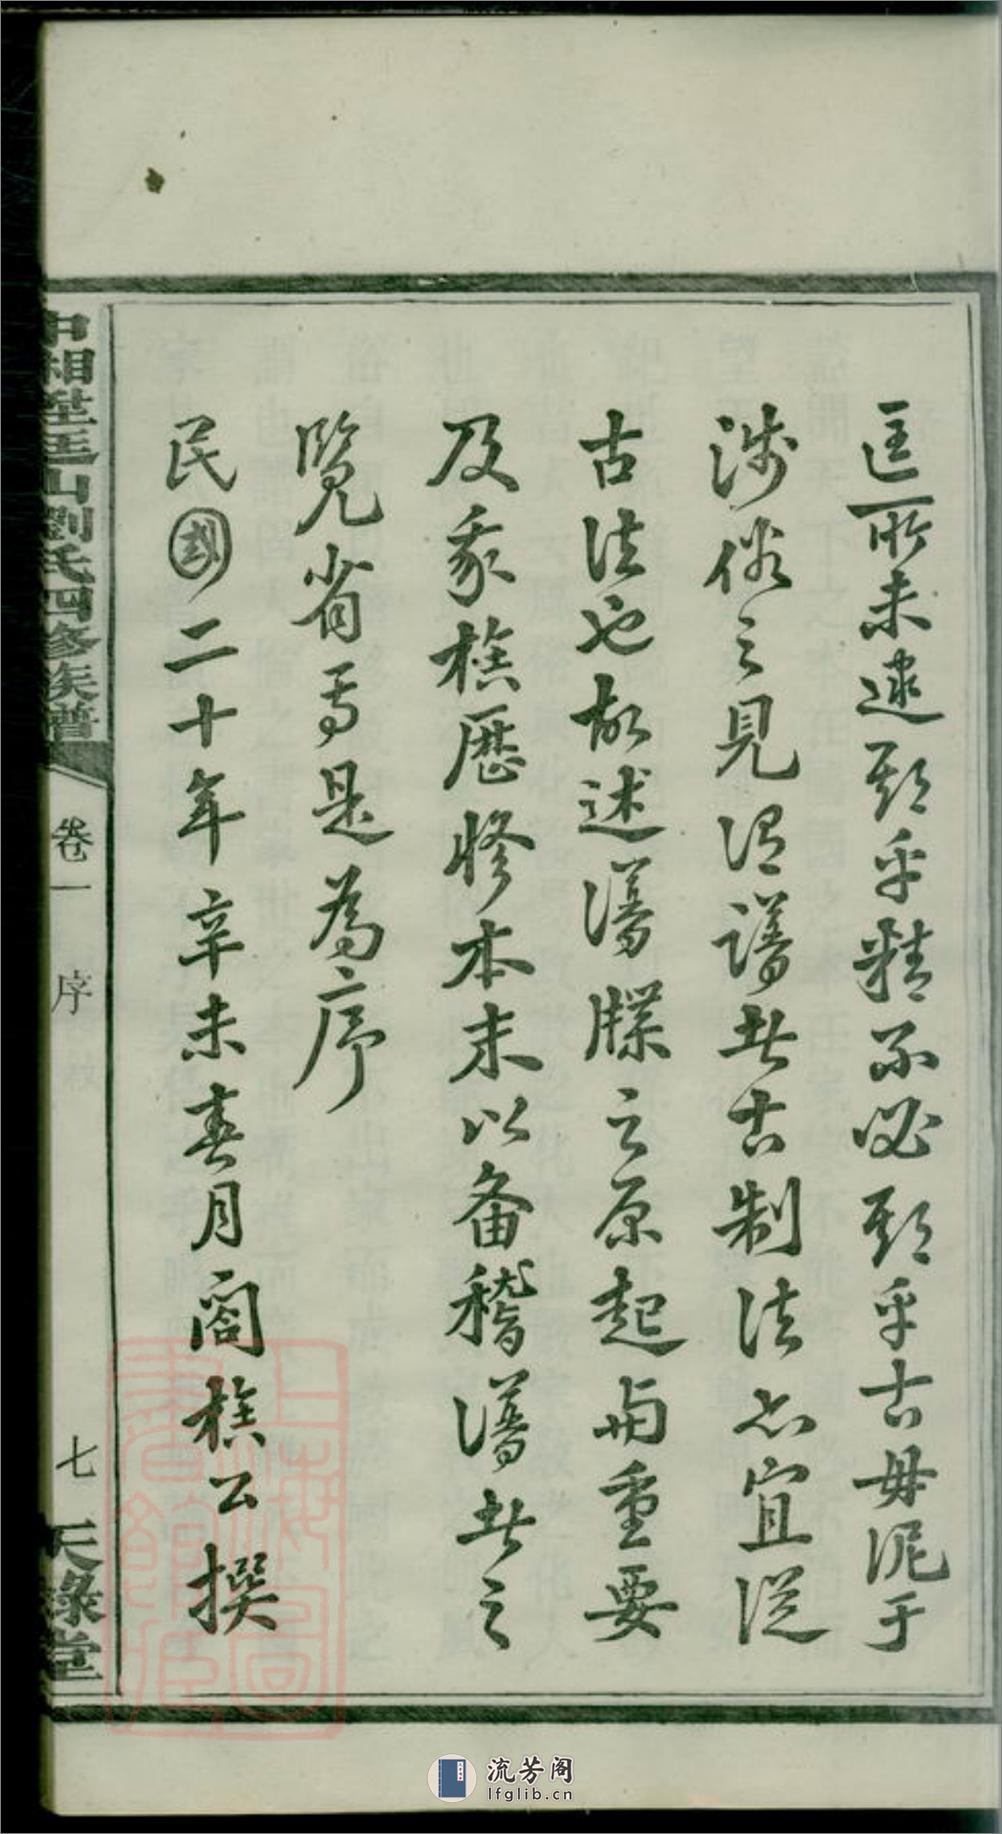 匡所未逮頋乎精不必頋乎古毋泥于
涉俗之見須譜者古制法亦宜從
古法也故述譜牒之原起與重要
及我族歷修本末以備稽譜者之
覽省焉是為序
民國二十年辛未春月閤族公撰
中湘
山劉氏四修族譜
卷一
序
七
天祿堂
上海圖書館藏
流芳阁
lfglib.cn